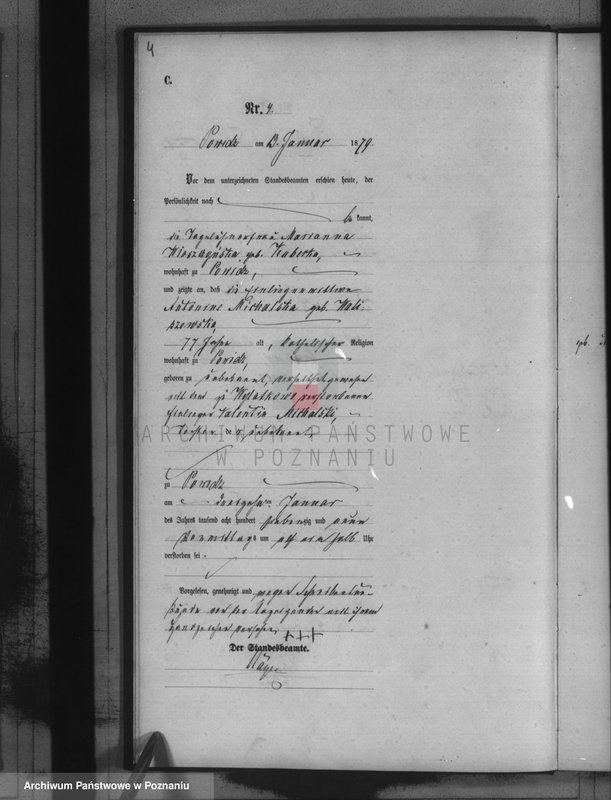 4
C.
Nr. 4.
Powidz am 13. Januar 1879.
Vor dem unterzeichneten Standesbeamten erschien heute, der
Persönlichkeit nach
be kannt,
die Tagelöhnerfrau Marianna
geb.
wohnhaft zu Powidz,
und zeigte an, daß die Einliegerwittwe
Antonine Michalska geb. Kali
szewska,
77 Jahre alt, katholischer Religion
wohnhaft zu Powidz,
geboren zu unbekannt, verheirathet gewesen
mit dem zu verstorbenen
Einlieger Valentin Michalski,
Tochter de r unbekannt,
zu Powidz
am dreizehnten Januar
des Jahres tausend acht hundert siebenzig und neun
Vormittags um elf ein halb Uhr
verstorben sei.
Vorgelesen, genehmigt und wegen Schreibensun-
kunde von der Anzeigenden mit ihrem
Handzeichen versehen
+++
Der Standesbeamte.
geb.
ARCHIWUM PAŃSTWOWE
W POZNANIU
Archiwum Państwowe w Poznaniu